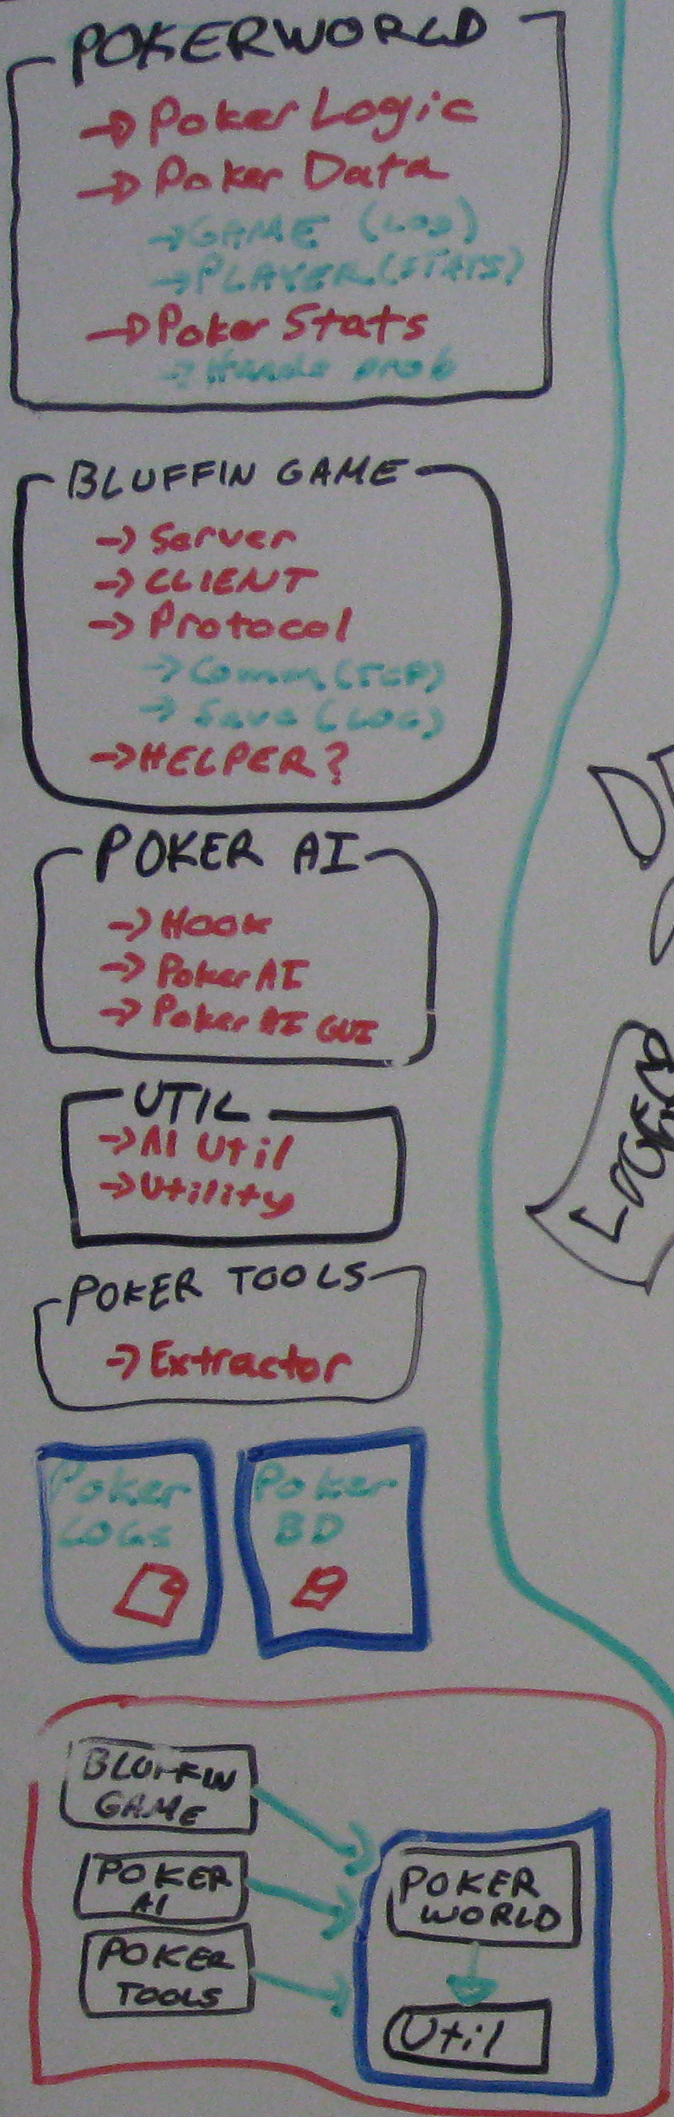 POKERWORLD
→ Poker Logic
→ Poker Data
→ GAME (LOG)
→ PLAYER (STATS)
→ Poker Stats
→ Hands prob
BLUFFIN GAME
→ Server
→ CLIENT
→ Protocol
→ Comm (TCP)
→ Save (LOG)
→ HELPER?
POKER AI
→ Hook
→ Poker AI
→ Poker AI GUI
UTIL
→ AI Util
→ Utility
POKER TOOLS
→ Extractor
Poker
LOGS
Poker
BD
BLUFFIN
GAME
POKER
AI
POKER
TOOLS
POKER
WORLD
Util